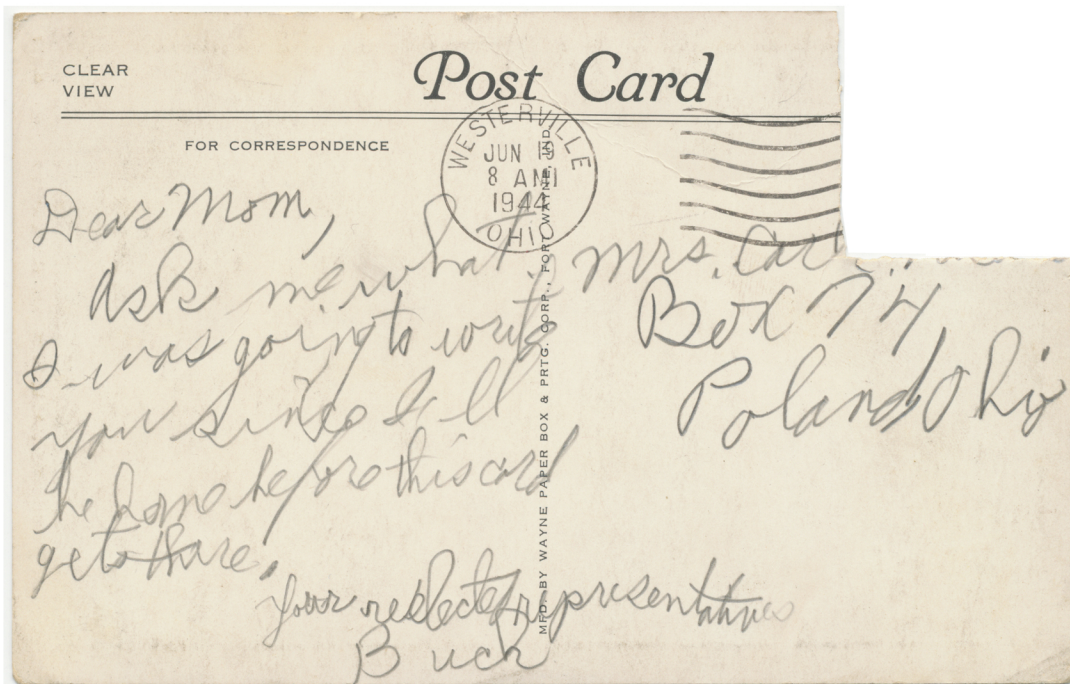 CLEAR
VIEW
Post Card
FOR CORRESPONDENCE
WESTERVILLE
JUN 15
8 AM
1944
OHIO
Dear Mom,
Ask me what
I was going to write
you since I'll
be home before this card
gets there.
Your reelected representative
Buck
MFD. BY WAYNE PAPER BOX & PRTG. CORP., FORT WAYNE, IND.
Mrs. Carl
Box 74
Poland Ohio